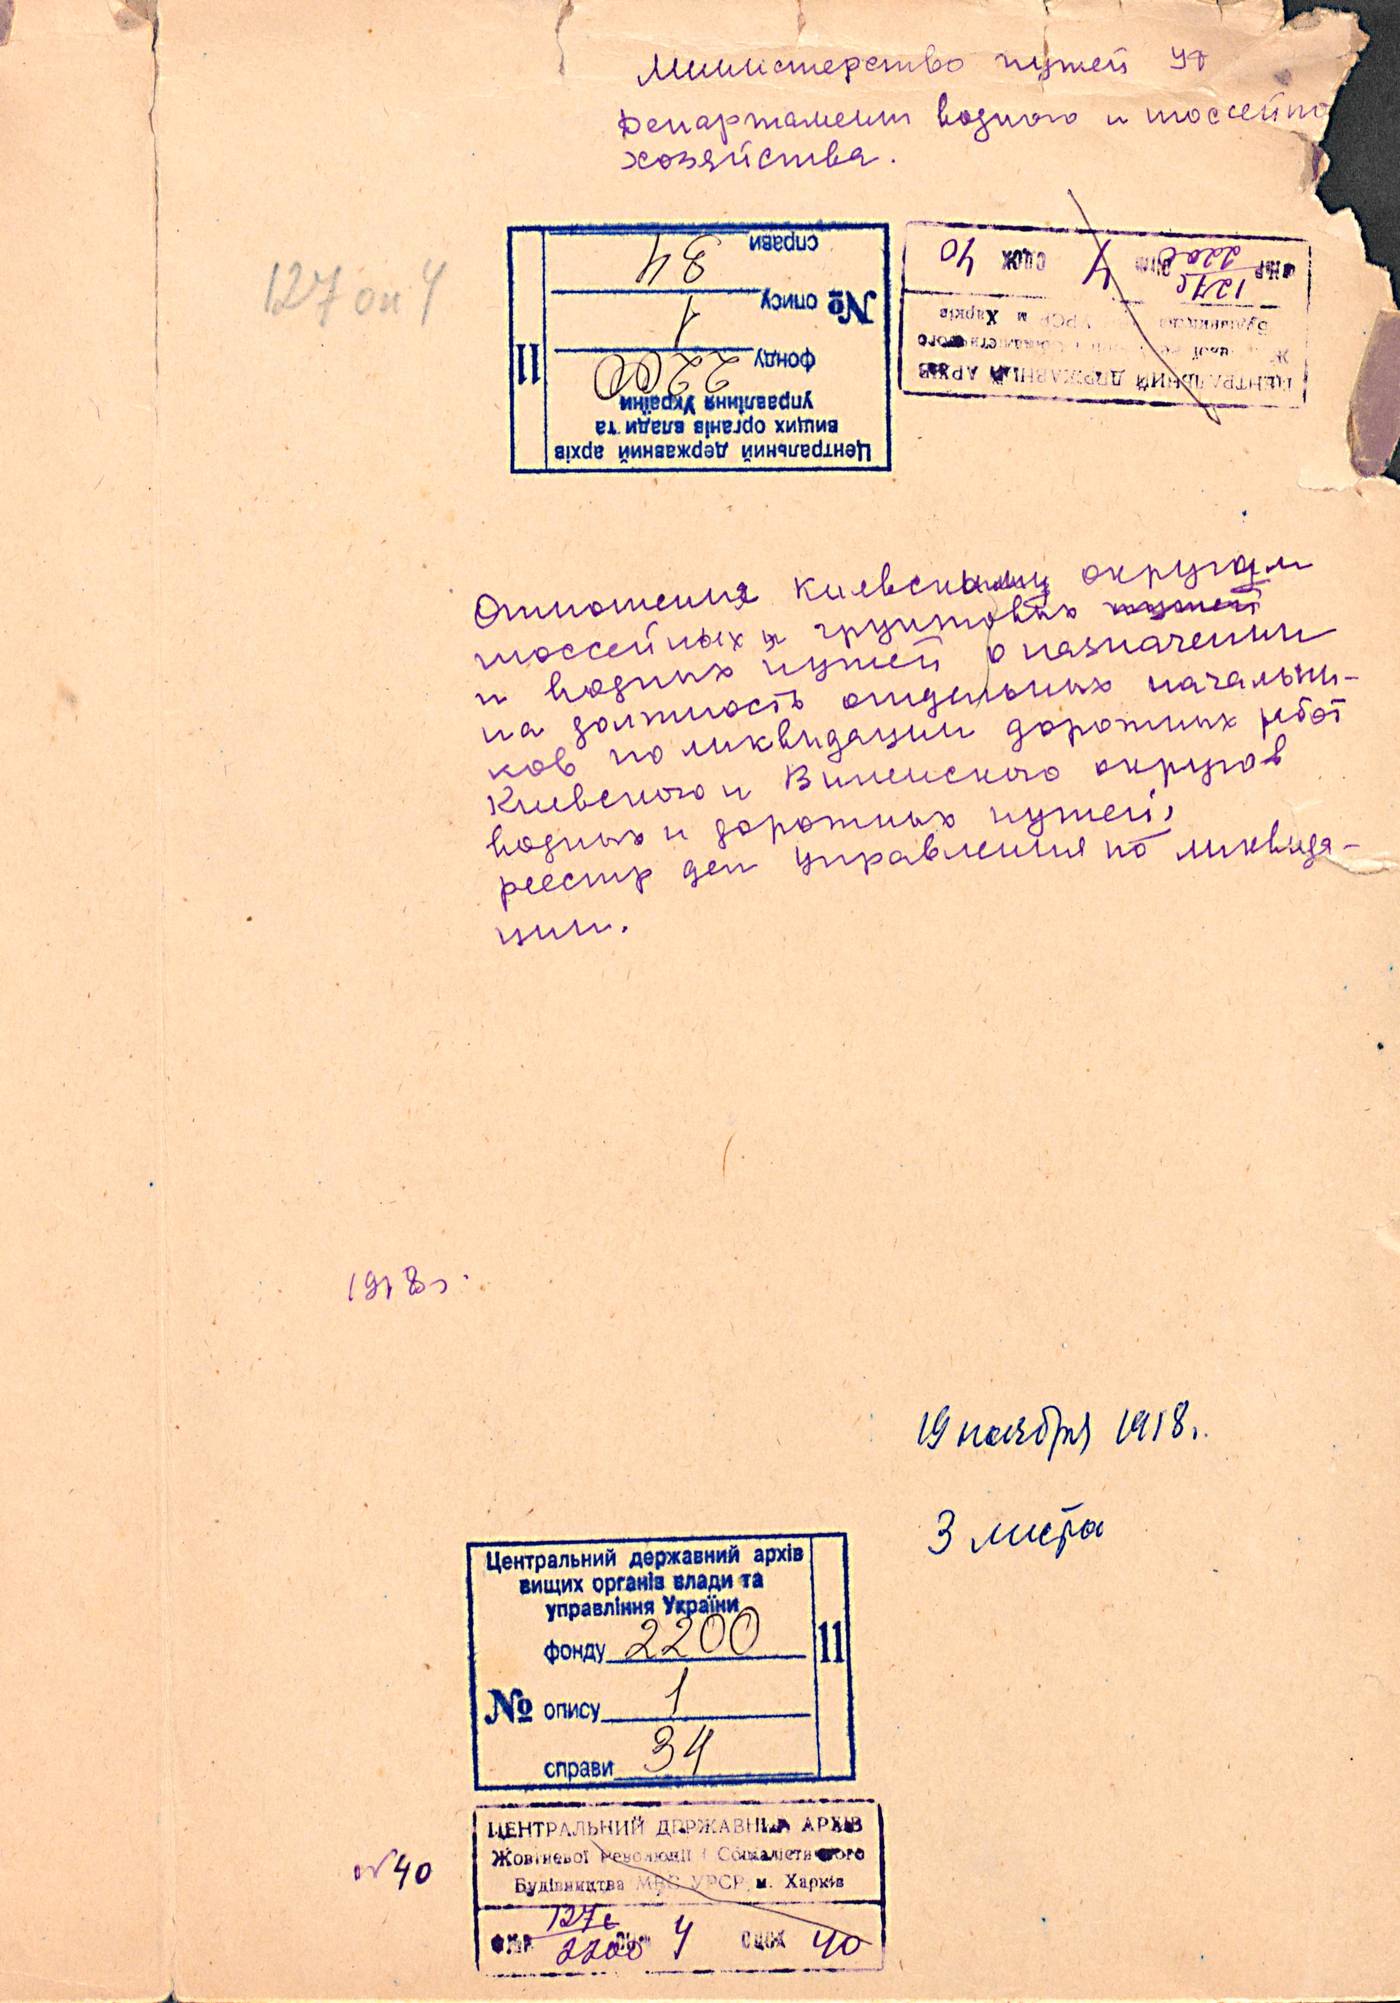 Министерство путей
Департамент водного и шоссейно
хозяйства.
127 оп 4
Центральний державний архів
вищих органів влади та
управління України
фонду 2200
№ опису 1
справи 34
11
ЦЕНТРАЛЬНИЙ ДЕРЖАВНИЙ АРХІВ
Будівництва УРСР м Харків
127с
2200 4 40
Отношения Киевским округам
шоссейных и грунтовых путей
и водных путей о назначении
на должность отдельных начальни-
ков по ликвидации дорожных работ
Киевского и Виленского округов
водных и дорожных путей;
реестр дел управления по ликвида-
ции.
1918 г.
19 ноября 1918 г.
3 листа
Центральний державний архів
вищих органів влади та
управління України
фонду 2200
№ опису 1
справи 34
11
№ 40
ЦЕНТРАЛЬНИЙ ДЕРЖАВНИЙ АРХІВ
Жовтневої Революції і Соціалістичного
Будівництва МВС УРСР м. Харків
127с
2200 4 40